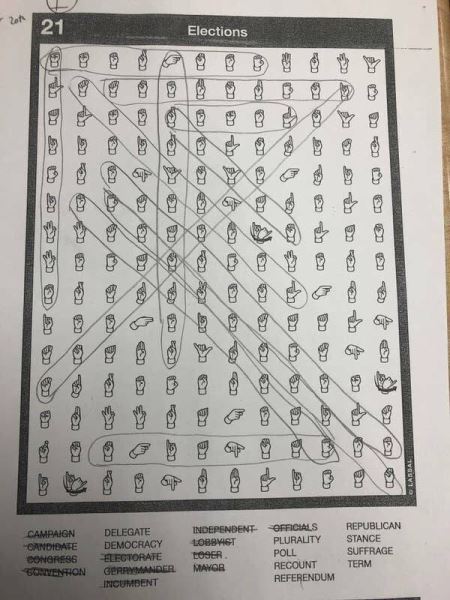 21
Elections
CAMPAIGN DELEGATE INDEPENDENT OFFICIALS REPUBLICAN
CANDIDATE DEMOCRACY LOBBYIST PLURALITY STANCE
CONGRESS ELECTORATE LOSER POLL SUFFRAGE
CONVENTION GERRYMANDER MAYOR RECOUNT TERM
INCUMBENT REFERENDUM
© LASSAL